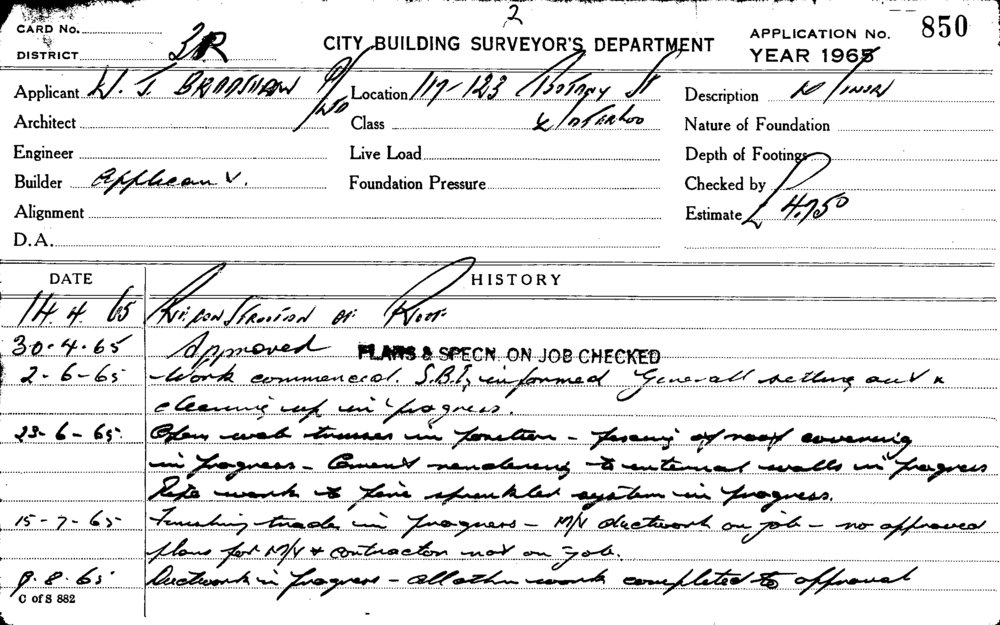 2
CARD No.
DISTRICT 2R
CITY BUILDING SURVEYOR'S DEPARTMENT
APPLICATION No. 850
YEAR 1965
Applicant W. J. BRADSHAW P/ LTD Location 117-123 BOTANY ST Description Minor
Architect Class WATERLOO Nature of Foundation
Engineer Live Load Depth of Footings
Builder Applicant. Foundation Pressure Checked by
Alignment Estimate £ 4.750
D.A.
DATE HISTORY
14.4.65 Reconstruction of Roof
30.4.65 Approved PLANS & SPECN. ON JOB CHECKED
2-6-65 Work commenced. S.B.I. informed General setting out &
cleaning up in progress.
23-6-65. Open web trusses in position - fixing of roof covering
in progress - Cement rendering to internal walls in progress
Pipe work to fire sprinkler system in progress.
15-7-65 Finishing trades in progress - M/V ductwork on job - no approved
plans for M/V & contractor not on job.
9.8.65 Ductwork in progress - all other work completed to approval
C of S 882